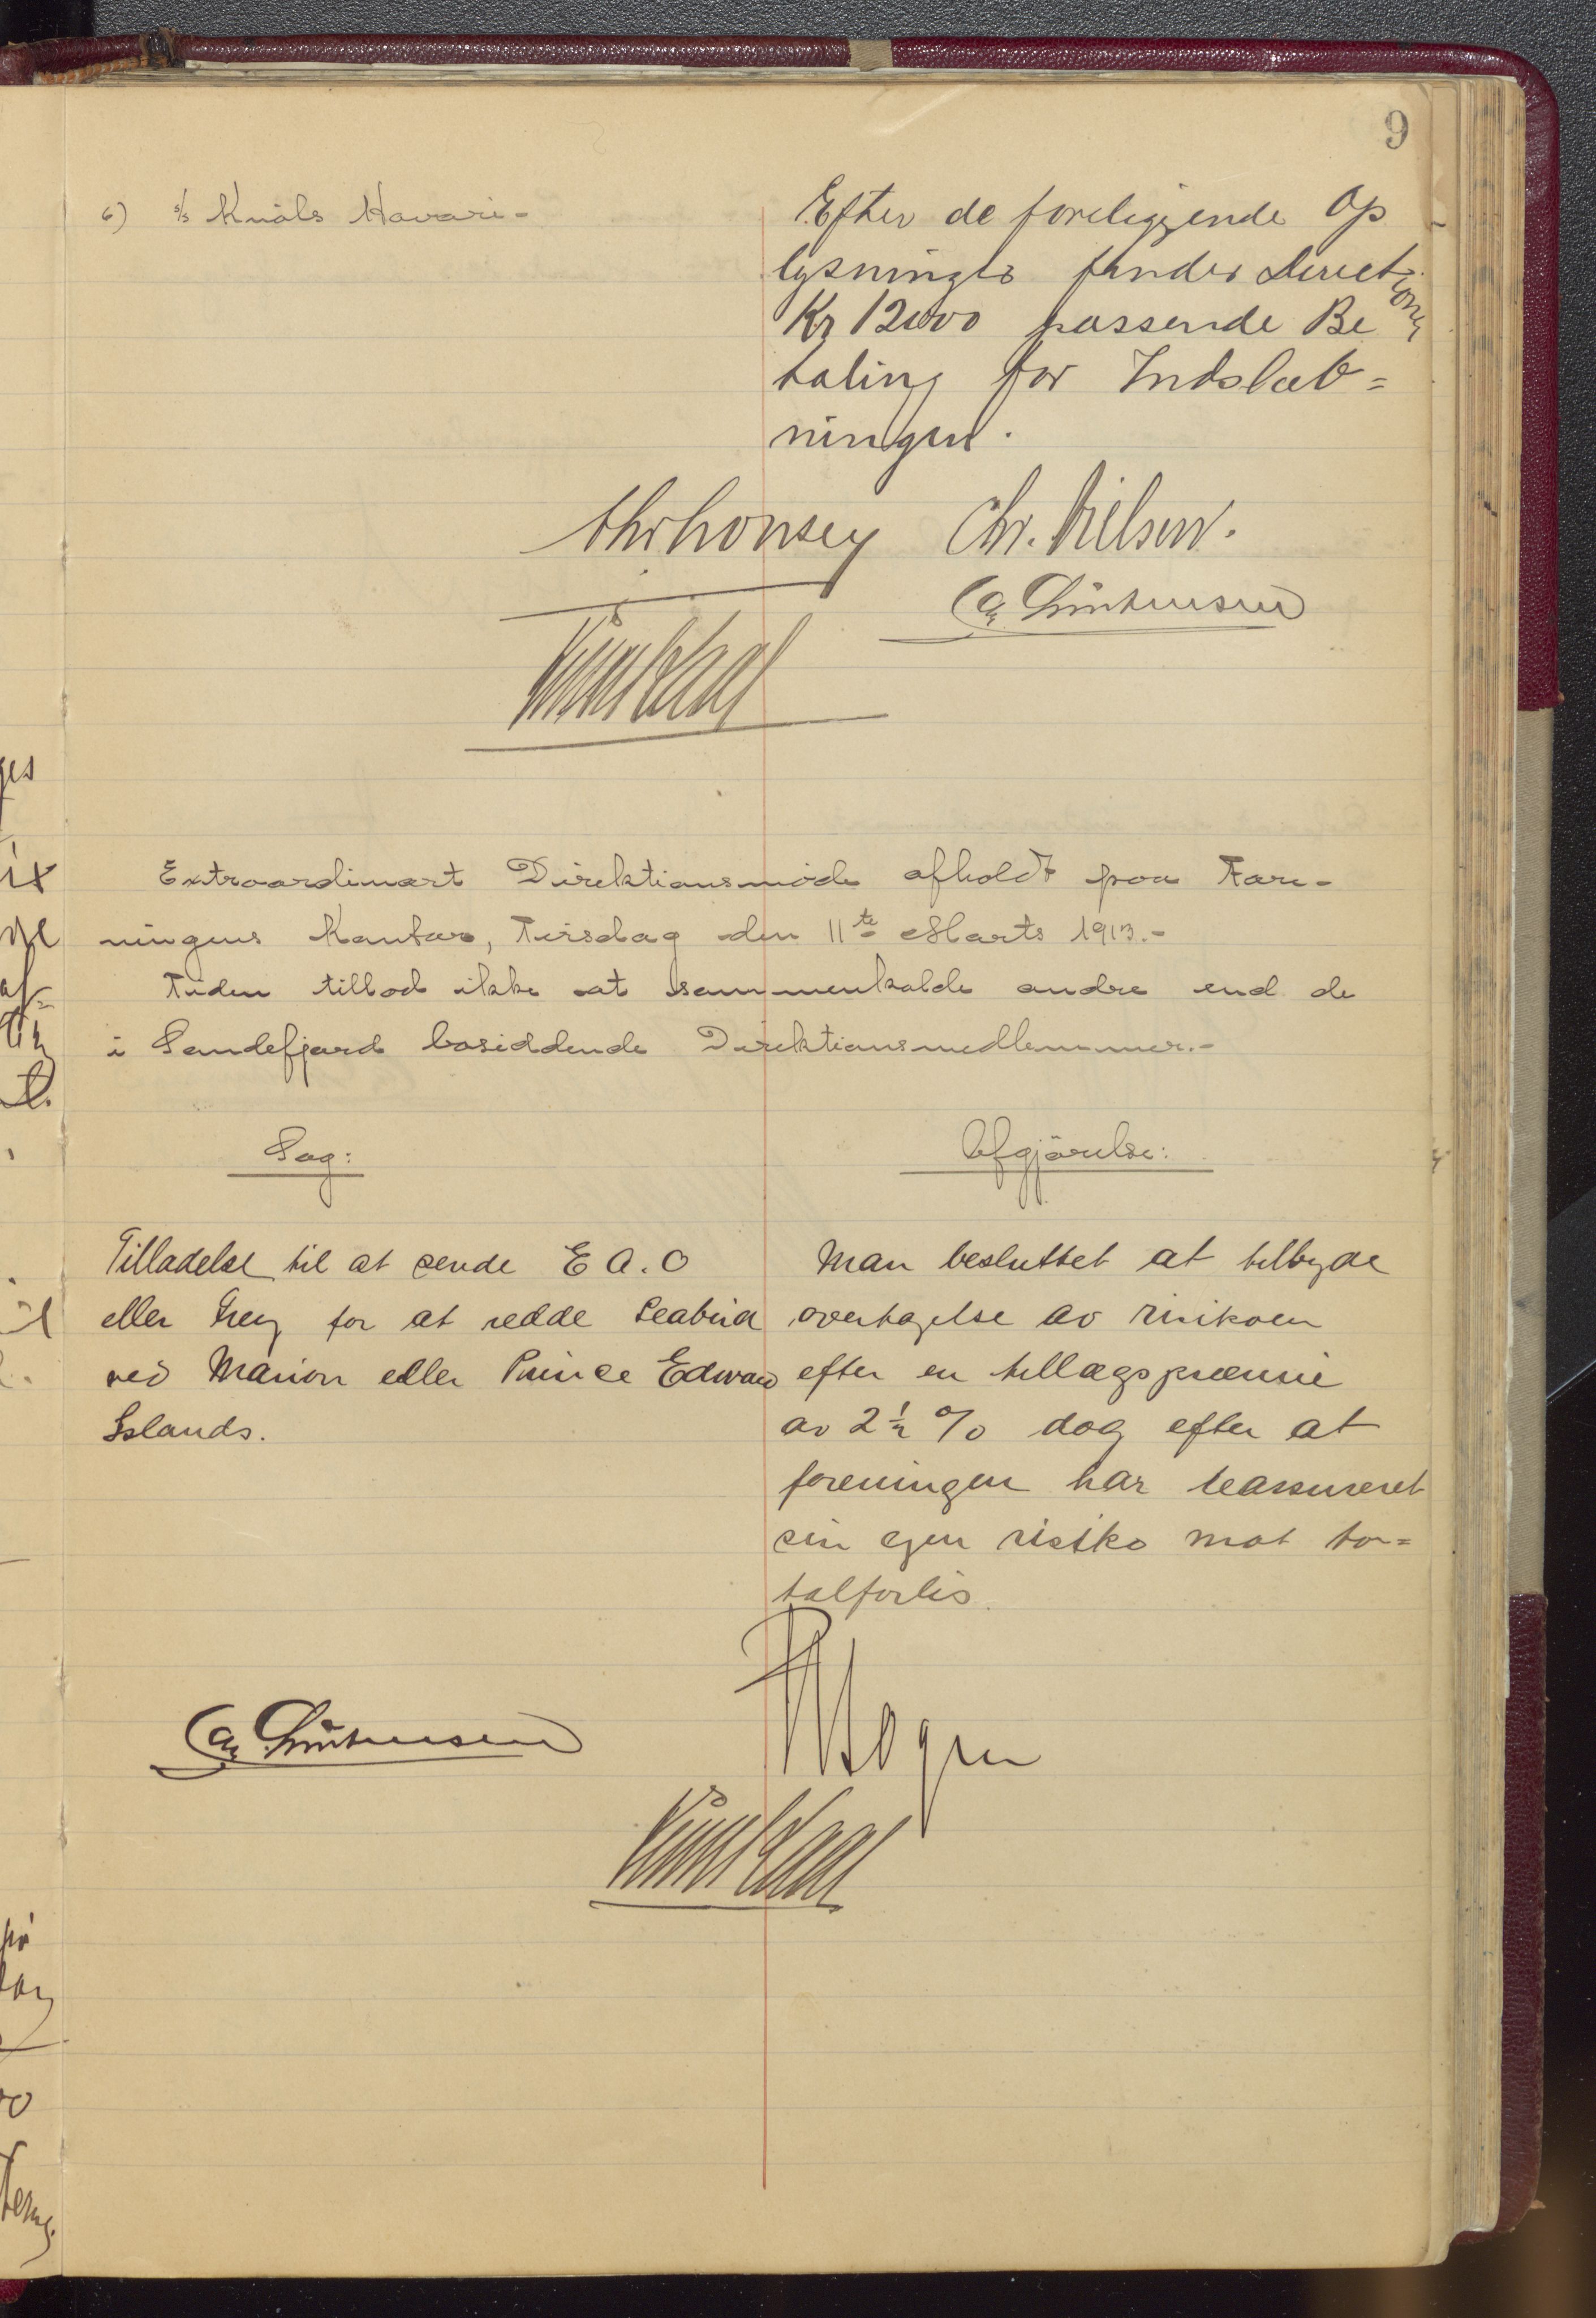 9
6) s/s Knøls Havari -
Efter de foreliggende Op
lysninger finder Direct
ionen
Kr 12000 passende Be
taling for Indslæb=
ningen.
Chr. Nilsen.
Extraordinært Direktionsmöde afholdt paa Fore-
ningens Kontor, Tirsdag den 11te Marts 1913.-
Tiden tillod ikke at sammenkalde andre end de
i Sandefjord bosiddende Direktionsmedlemmer.-
Sag:
Afgjörelse:
Tilladelse til at sende E A. O
eller Grey for at redde Seabird
ved Marion eller Prince Edward
Islands.
Man besluttet at tilbyde
overtagelse av risikoen
efter en tillægspræmie
av 2½ % dog efter at
foreningen har reassureret
sin egen risiko mot to=
talforlis.